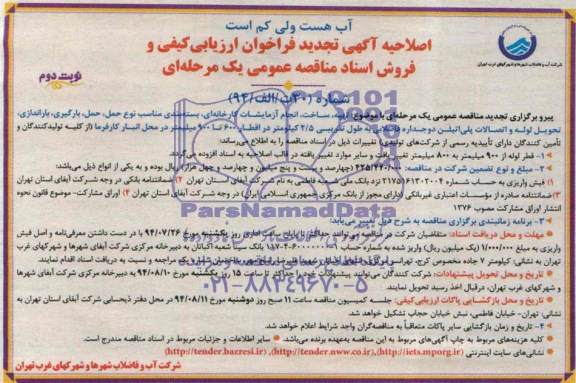 آب هست ولی کم است
اصلاحیه آگهی تجدید فراخوان ارزیابی کیفی و
فروش اسناد مناقصه عمومی یک مرحله‌ای
شرکت آب و فاضلاب شهرها و شهرکهای غرب تهران
نوبت دوم
شماره (۳۰/ب/الف/۹۴)
پیرو برگزاری تجدید مناقصه عمومی یک مرحله‌ای با موضوع: تهیه، ساخت، انجام آزمایشات کارخانه‌ای، بسته‌بندی مناسب نوع حمل، حمل، بارگیری، باراندازی،
تحویل لوله و اتصالات پلی‌اتیلن دوجداره فاضلابی به طول تقریبی ۲/۵ کیلومتر در اقطار ۶۰۰ تا ۹۰۰ میلیمتر در محل انبار کارفرما (از کلیه تولیدکنندگان و
تأمین کنندگان دارای تأییدیه رسمی از شرکت‌های تولیدی) تغییرات ذیل در اسناد مناقصه را به اطلاع می‌رساند:
۱- قطر لوله از ۹۰۰ میلیمتر به ۸۰۰ میلیمتر تغییر یافت و سایر موارد تغییر یافته در قالب اصلاحیه به اسناد افزوده می‌گردد.
۲- مبلغ و نوع تضمین شرکت در مناقصه: (چهارصد و بیست و پنج میلیون و چهارصد و چهل هزار) ریال بوده و به یکی از انواع ذیل می‌باشد:
۱) فیش واریزی به حساب شماره ۲۱۷۵۱۶۱۳۰۲۰۰۴ نزد بانک ملی شعبه فاطمی به نام شرکت آبفای استان تهران ۲) ضمانتنامه بانکی در وجه شرکت آبفای استان تهران
۳) ضمانتنامه صادره از مؤسسات اعتباری غیربانکی (دارای مجوز از بانک مرکزی جمهوری اسلامی ایران) در وجه شرکت آبفای استان تهران ۴) اوراق مشارکت- موضوع قانون نحوه
انتشار اوراق مشارکت مصوب ۱۳۷۶
۳- برنامه زمانبندی برگزاری مناقصه به شرح ذیل تغییر می‌یابد:
مهلت و محل دریافت اسناد: متقاضیان شرکت در مناقصه می‌توانند حداکثر تا پایان ساعت اداری روز یکشنبه مورخ ۹۴/۰۷/۲۶ با در دست داشتن معرفی‌نامه و اصل فیش
واریزی به مبلغ ۱/۰۰۰/۰۰۰ (یک میلیون) ریال واریز شده به شماره حساب بانک سینا شعبه اکباتان به دبیرخانه مرکزی شرکت آبفای شهرها و شهرکهای غرب
تهران به نشانی: کیلومتر ۷ جاده مخصوص کرج، تهرانسر مراجعه و نسبت به دریافت اسناد اقدام نمایند.
تاریخ و محل تحویل پیشنهادات: شرکت کنندگان می‌توانند پیشنهادات خود را حداکثر تا ساعت ۱۵ روز یکشنبه مورخ ۹۴/۰۸/۱۰ به دبیرخانه مرکزی شرکت آبفای شهرها
و شهرکهای غرب تهران، درقبال اخذ رسید تحویل نمایند.
تاریخ و محل بازگشایی پاکات ارزیابی کیفی: جلسه کمیسیون مناقصه ساعت ۱۱ صبح روز دوشنبه مورخ ۹۴/۰۸/۱۱ در محل دفتر ذیحسابی شرکت آبفای استان تهران به
نشانی تهران- خیابان فاطمی، نبش خیابان حجاب تشکیل خواهد شد.
۴- تاریخ و زمان بازگشایی سایر پاکات متعاقباً به مناقصه‌گران واجد شرایط اعلام خواهد شد.
کلیه هزینه‌های مربوط به چاپ آگهی‌های مربوط به این مناقصه به‌عهده برنده می‌باشد. سایر اطلاعات و جزئیات مربوط در اسناد مناقصه مندرج است.
نشانی‌های سایت اینترنتی (http://iets.mporg.ir)، (http://tender.nww.co.ir)، (http://tender.bazresi.ir)
شرکت آب و فاضلاب شهرها و شهرکهای غرب تهران
ParsNamadData
۰۲۱-۸۸۳۴۹۶۷۰-۵